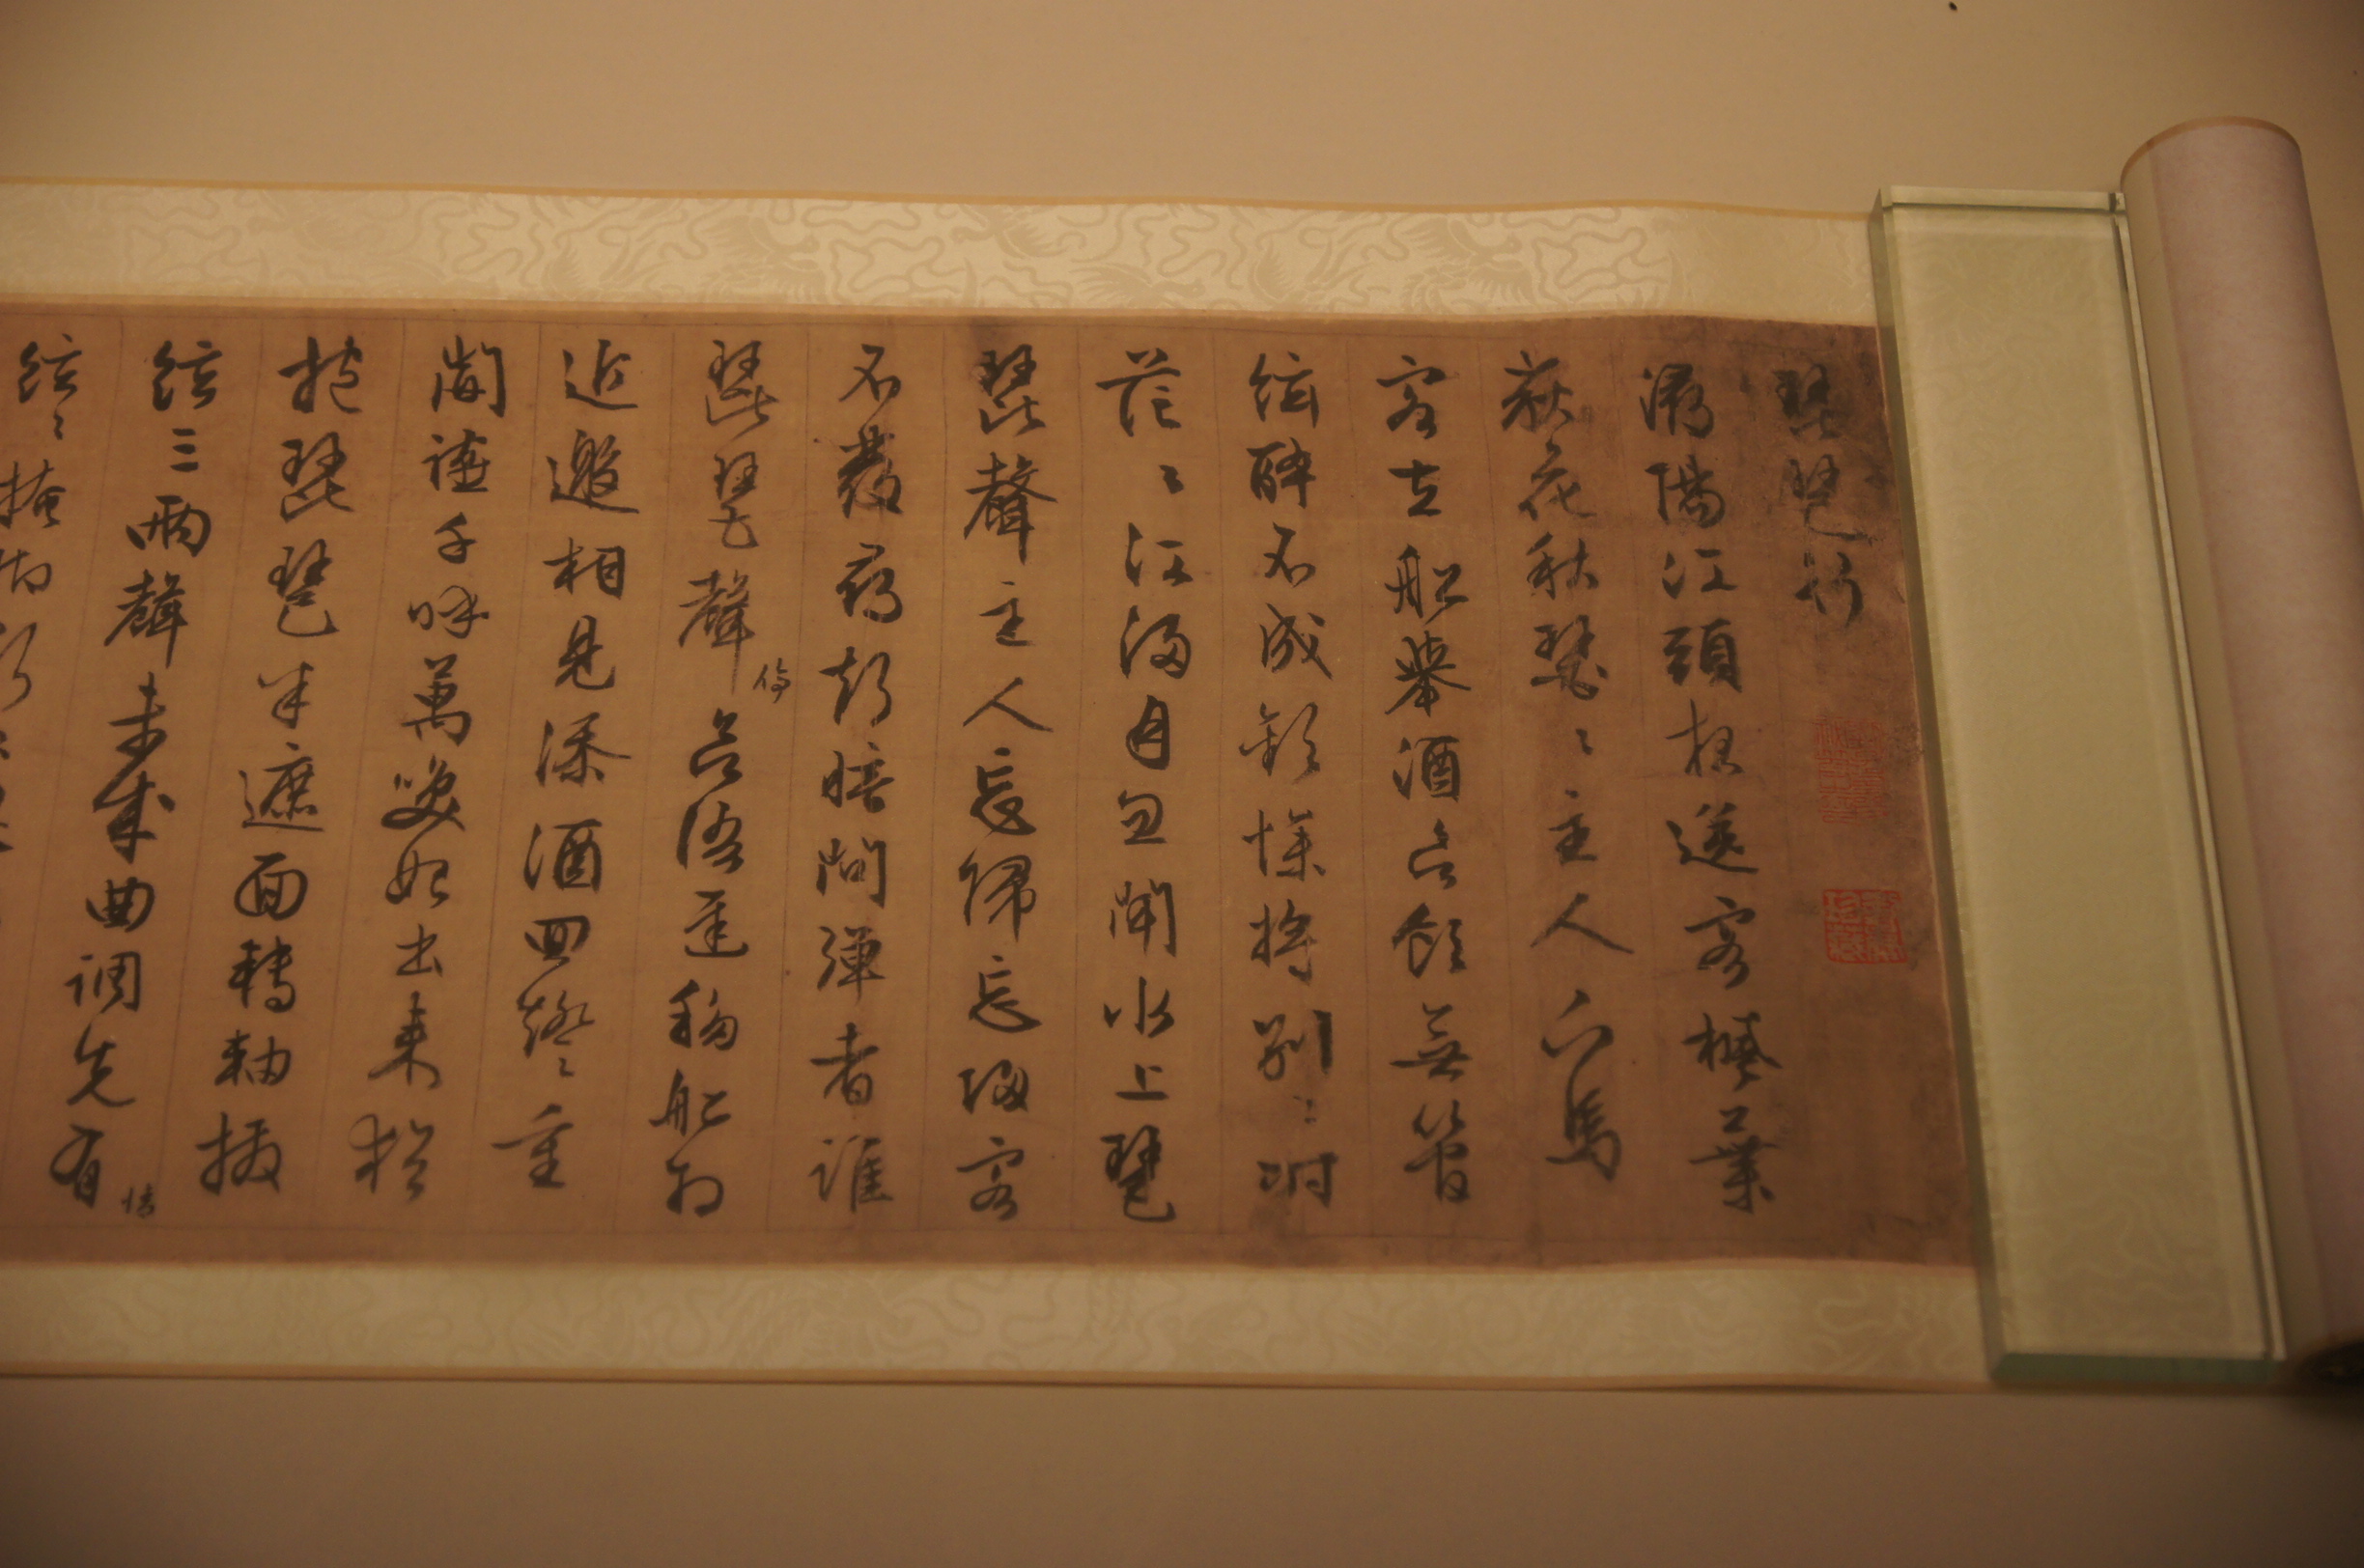 琵琶行
潯陽江頭夜送客楓葉
荻花秋瑟々主人下馬
客在船舉酒欲飲無管
絃醉不成歡慘將別々時
茫々江浸月忽聞水上琶
琵聲主人忘歸忘歸客
不發尋聲暗問彈者誰
琵琶聲停欲語遲移船相
近邀相見添酒回燈々重
開讌千呼萬喚始出來猶
抱琵琶半遮面轉軸撥
絃三兩聲未成曲調先有情
絃々掩抑